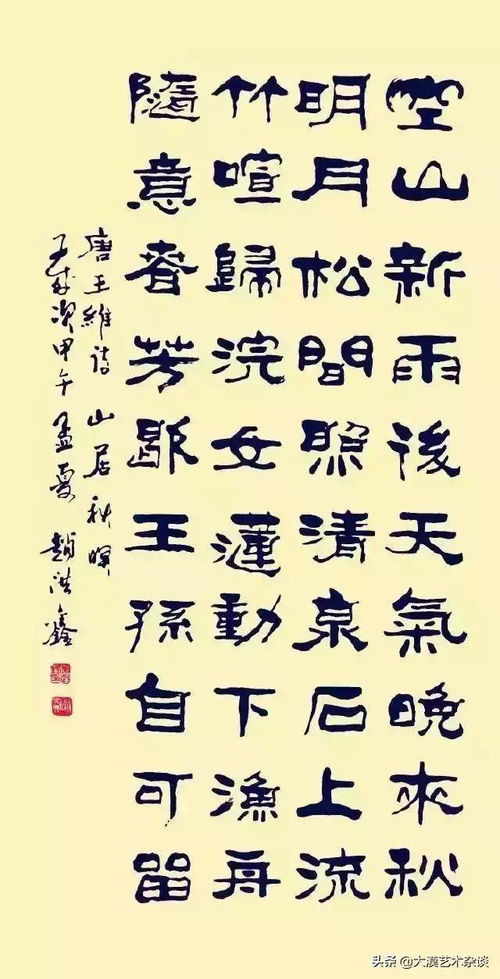 空山新雨後天氣晚來秋
明月松間照清泉石上流
竹喧歸浣女蓮動下漁舟
隨意春芳歇王孫自可留
唐王維詩 山居秋暝
歲次甲午孟夏 趙 鑫
头条 @大漠艺术杂谈